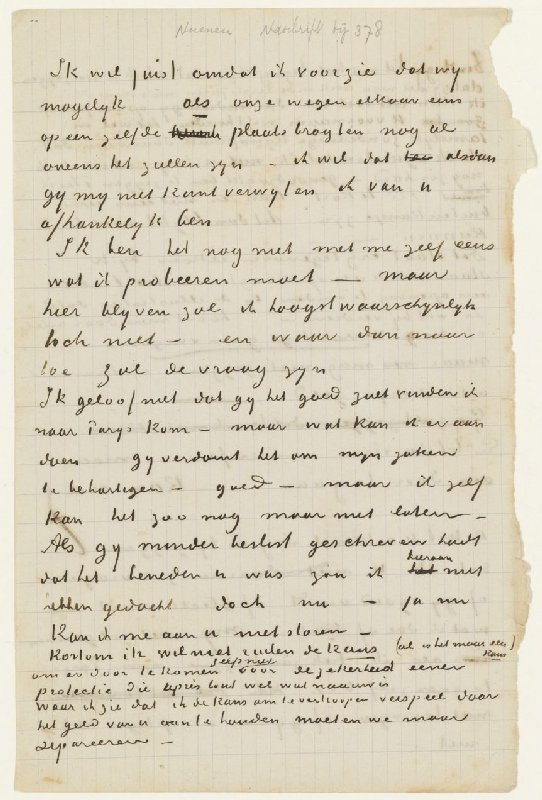 Nuenen Naschrift bij 378
Ik wil juist omdat ik voorzie dat wy
mogelyk als onze wegen elkaar eens
op een zelfde plaats bragten nog al
oneens het zullen zyn – ik wil dat alsdan
gy my niet kunt verwyten ik van u
afhankelyk ben
Ik ben het nog niet met me zelf eens
wat ik probeeren moet – maar
hier blyven zal ik hoogstwaarschynlyk
toch niet – en waar dan naar
toe zal de vraag zyn
Ik geloof niet dat gy het goed zult vinden ik
naar Parys kom – maar wat kan ik er aan
doen gy verdomt het om myn zaken
te behartigen – goed – maar ik zelf
kan het zoo nog maar niet laten –
Als gy minder beslist geschreven hadt
dat het beneden u was zou ik hieraan niet
hebben gedacht doch nu – ja nu
kan ik me aan u niet storen –
Kortom ik wil niet ruilen de kans (al is het maar een kans)
om er door te komen zelfs niet voor de zekerheid eener
protectie die après tout wel wat naauw is
Waar ik zie dat ik de kans om te verkoopen verspeel door
het geld van u aan te houden moeten we maar
separeeren –